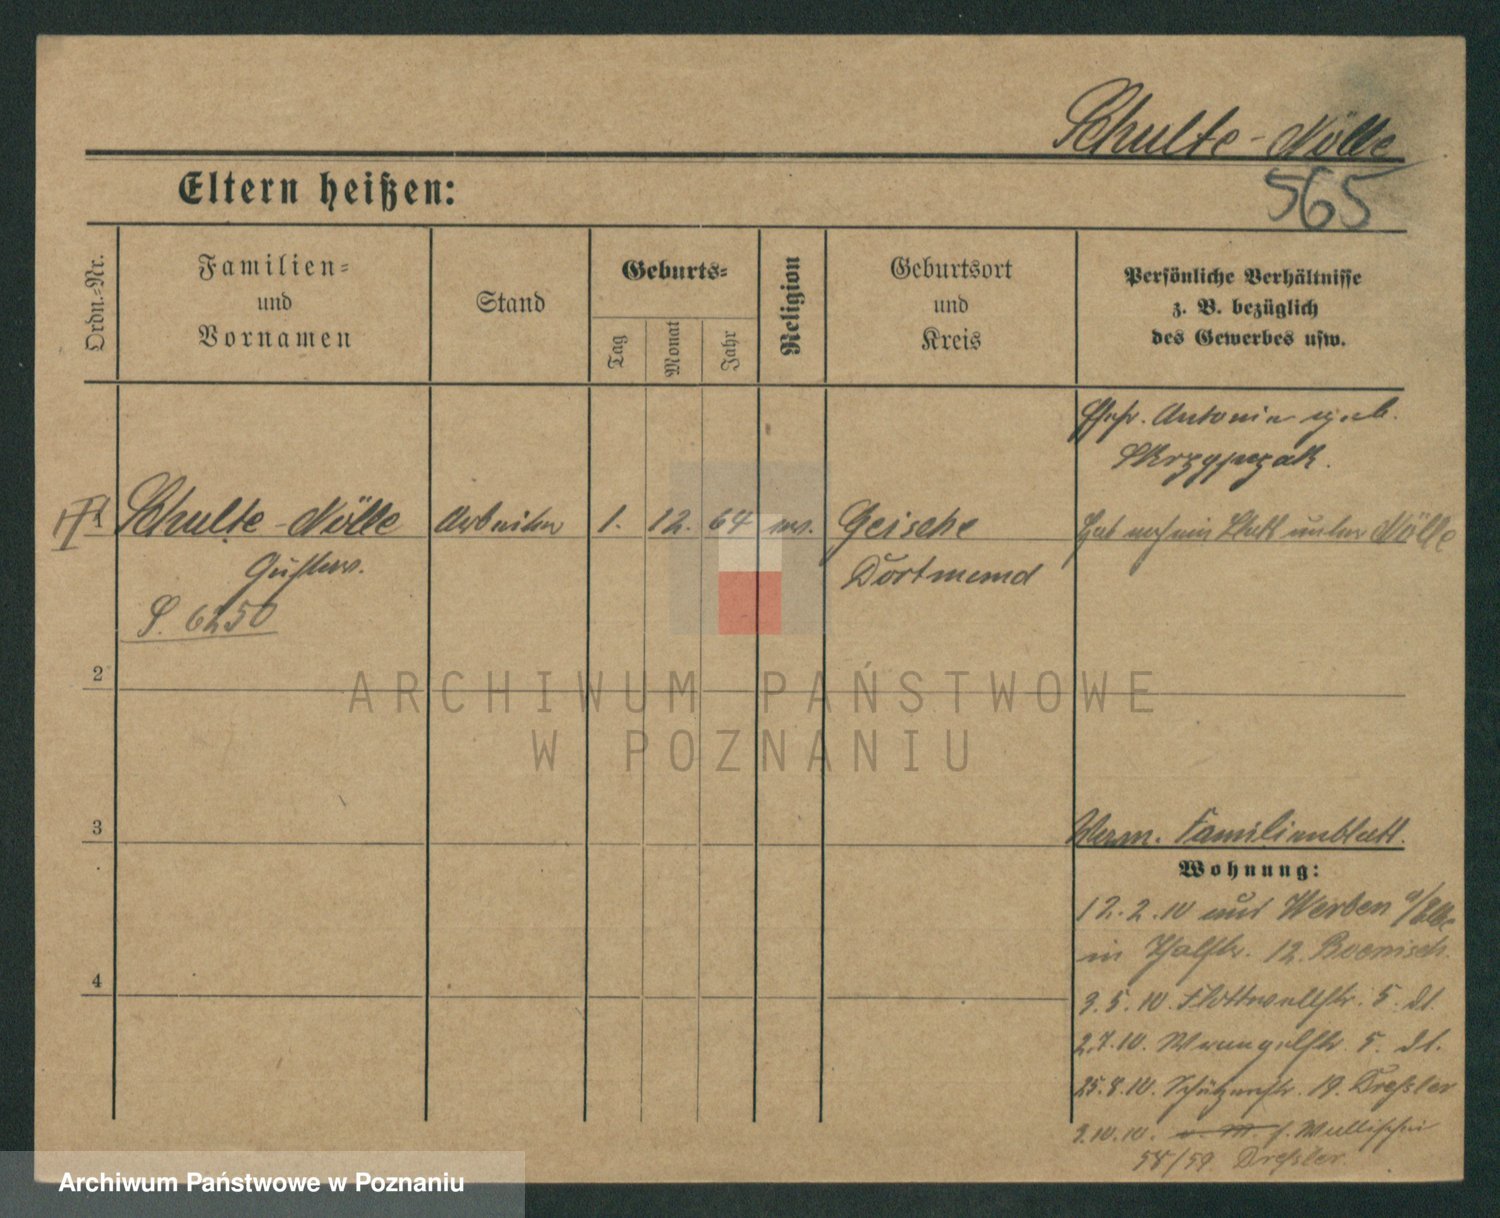 Schulte-Nölle
565
Eltern heißen:
Ordn.-Nr.
Familien-
und
Vornamen
Stand
Geburts-
Tag
Monat
Jahr
Religion
Geburtsort
und
Kreis
Persönliche Verhältnisse
z. B. bezüglich
des Gewerbes usw.
Ehefr. Antonie geb.
Skrzypczak.
1
Schulte-Nölle Arbeiter 1. 12. 64 ev. Geische hat noch ein Blatt unter Nölle
Gustav. Dortmund
S. 6250
2
3
Verm. Familienblatt.
Wohnung:
12.2.10 aus Werben a/Elbe
in Thalstr. 12. Boenisch.
4
3.5.10. Flottwellstr. 5. dt.
2.7.10. Wrangelstr. 5. dt.
25.8.10. Schützenstr. 19. Dreßler
3.10.10. Wallischei
58/59 Dreßler
ARCHIWUM PAŃSTWOWE
W POZNANIU
Archiwum Państwowe w Poznaniu